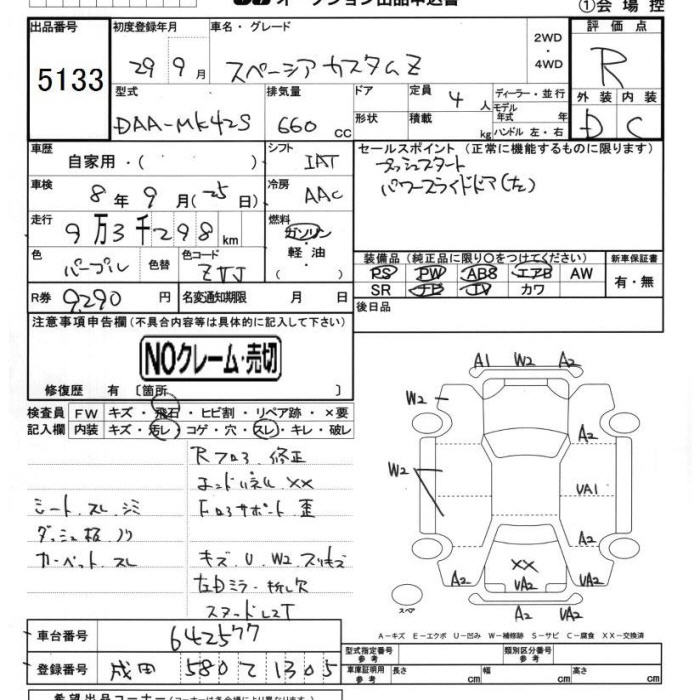 オークション出品申込書
①会場控
出品番号 初度登録年月 車名・グレード 評価点
5133 29 9月 スペーシアカスタムZ 2WD・4WD R
型式 排気量 ドア 定員 4人 ディーラー・並行 外装 内装
DAA-MK42S 660cc 形状 積載 kg モデル年式 年 ハンドル 左・右 D C
車歴 自家用・( ) シフト IAT セールスポイント (正常に機能するものに限ります)
プッシュスタート
車検 8年9月(25日) 冷房 AAC パワースライドドア(左)
走行 9万3千298km 燃料 ガソリン・軽油・( )
色 パープル 色替 色コード ZVJ
装備品(純正品に限り○をつけてください) 新車保証書
PS PW ABS エアB AW 有・無
R券 9,290円 名変通知期限 月 日 SR ナビ TV カワ
後日品
注意事項申告欄(不具合内容等は具体的に記入して下さい)
NOクレーム・売切
修復歴 有 〔箇所 〕
検査員 FW キズ・飛石・ヒビ割・リペア跡・×要
記入欄 内装 キズ・汚レ・コゲ・穴・スレ・キレ・破レ
Rフロア 修正
エンドパネル ××
シート スレ シミ Fロアサポート 歪
ダッシュ板 ノリ
カーペット スレ キズ U W2 スリキズ
左Dミラー 折レ欠
スタッドレスT
A1 W2 A2
W2
A2
W2
UA1
A2
××
A2 UA2 A2
スペア
A2 UA2
A－キズ E－エクボ U－凹み W－補修跡 S－サビ C－腐食 XX－交換済
車台番号 642577
型式指定番号 参考 類別区分番号 参考
登録番号 成田 580 て 1305
車庫証明用 参考 長さ cm 幅 cm 高さ cm
希望出品コーナー